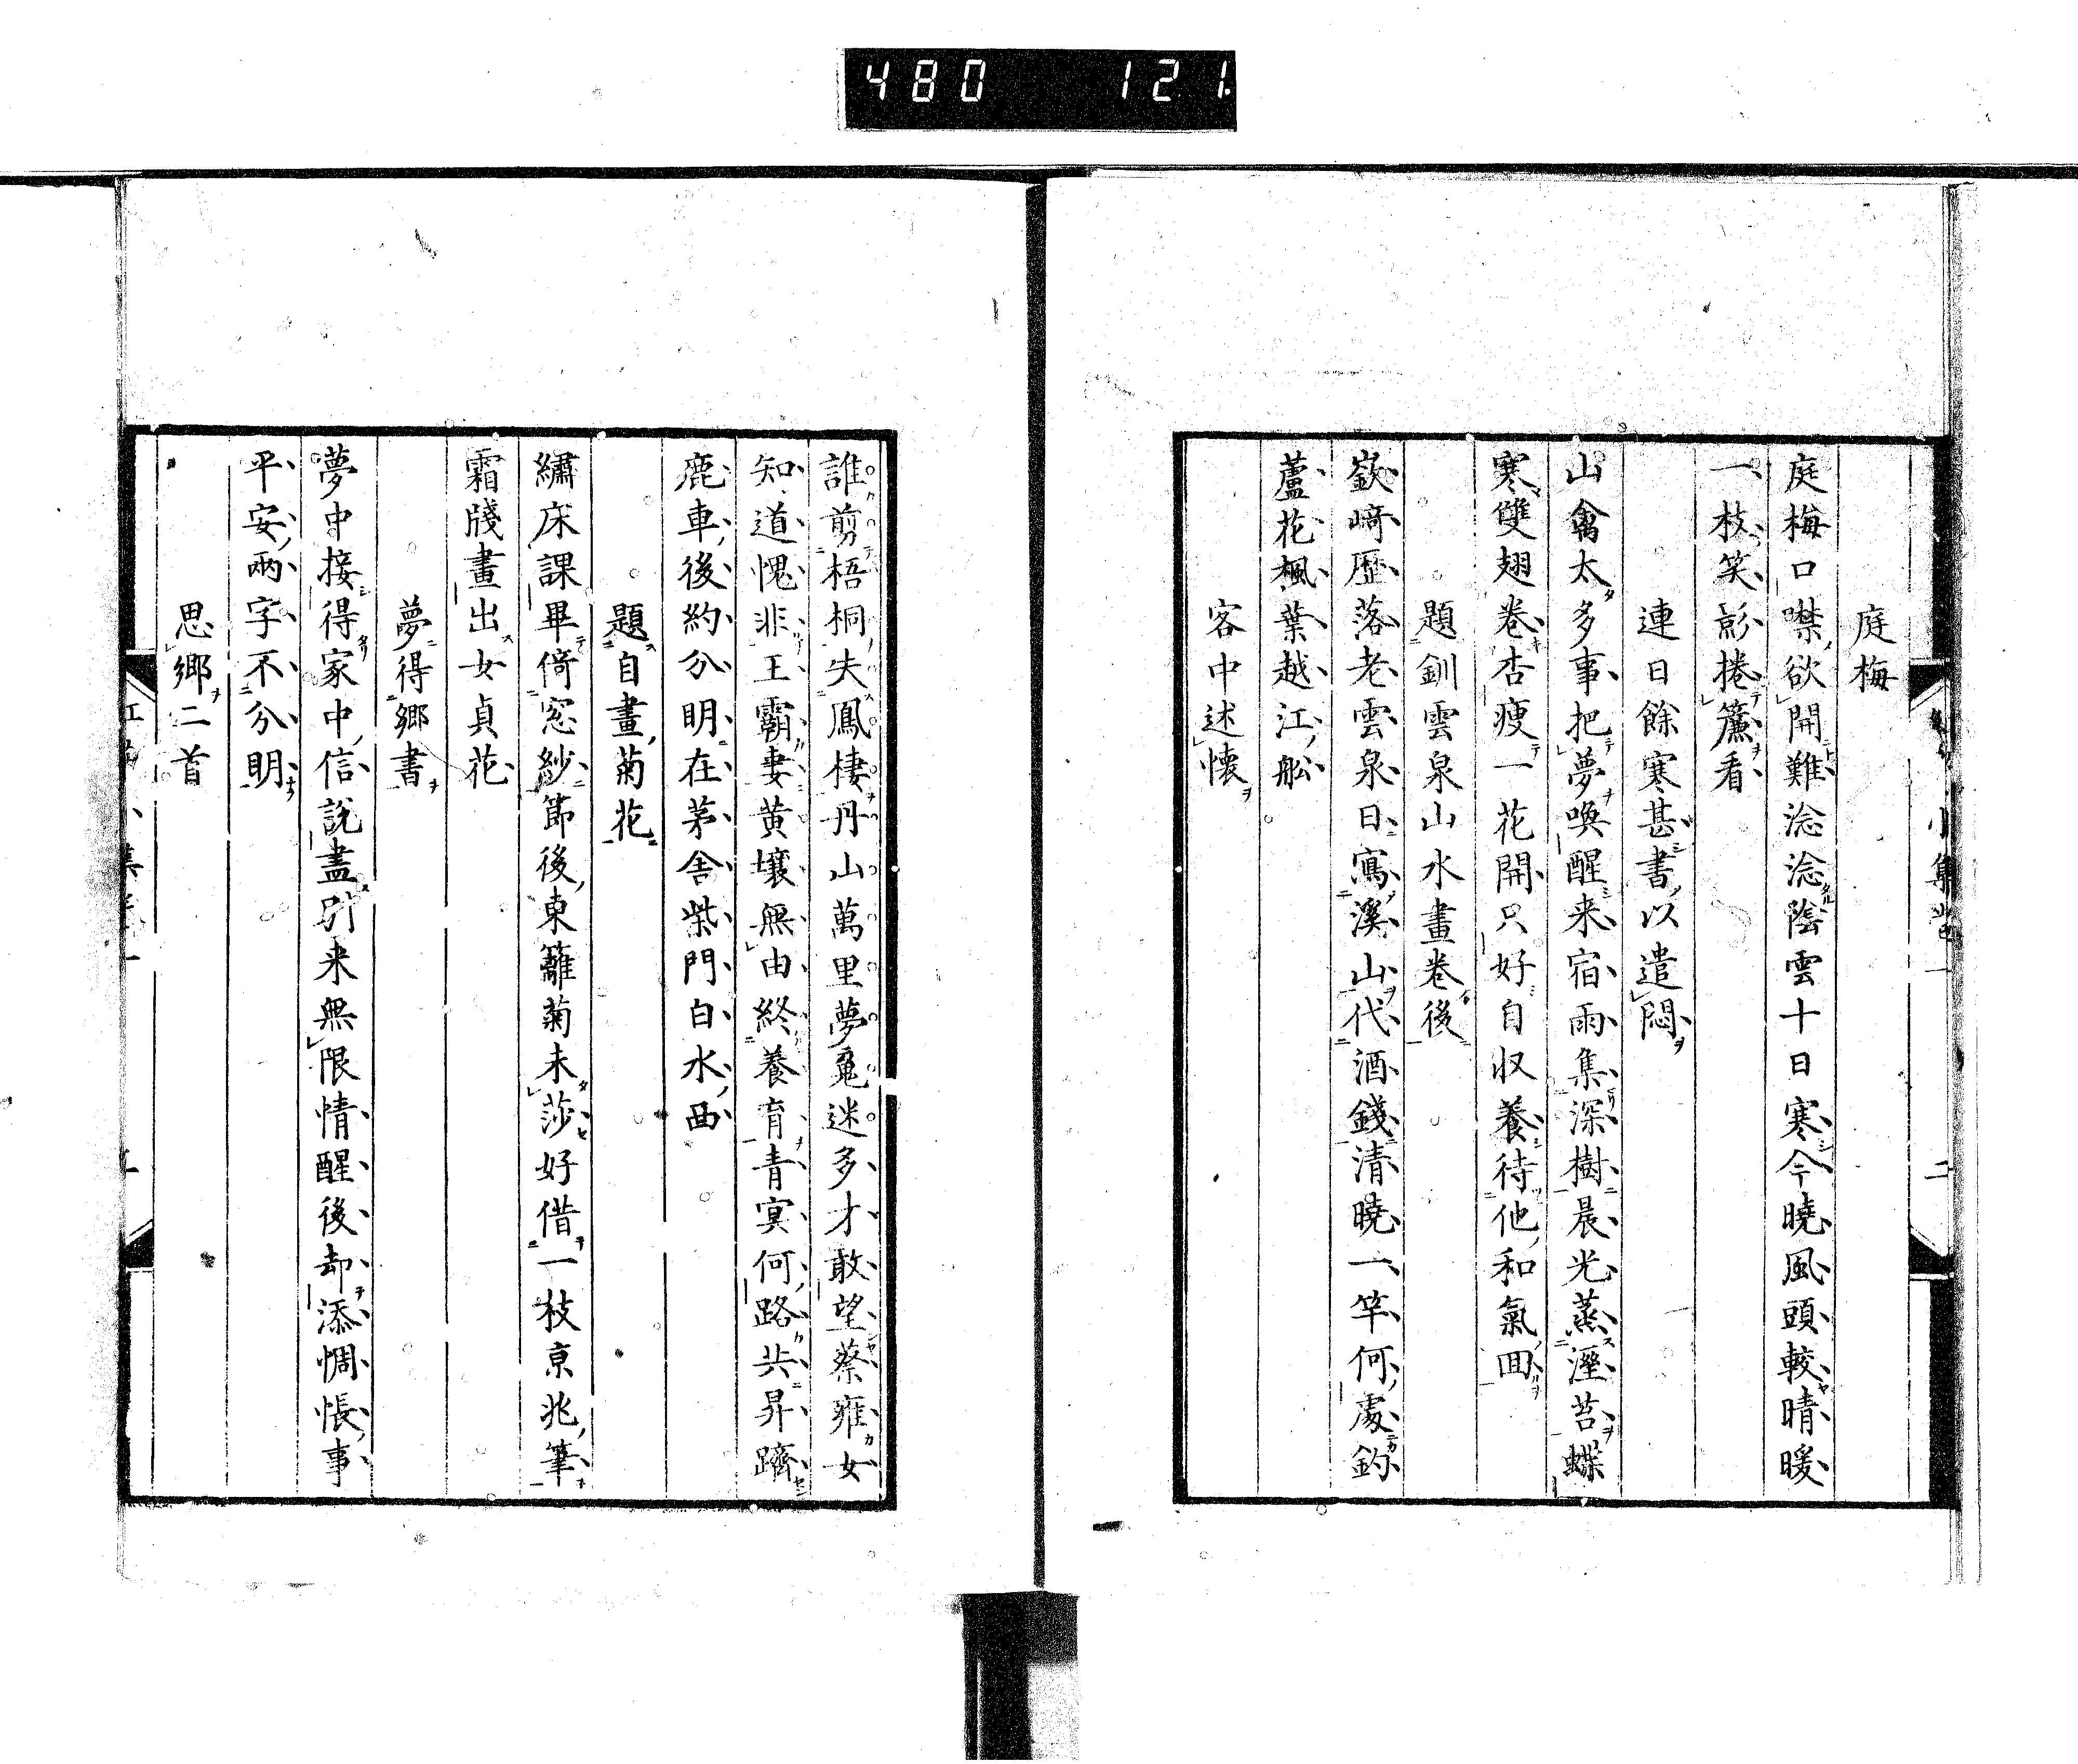 480 121
庭梅
庭梅口噤欲開難淰淰陰雲十日寒今曉風頭較晴暖
一枝笑影捲簾看
連日餘寒甚書以遣悶
山禽太多事把夢喚醒来宿雨集深樹晨光蒸溼苔蝶
寒雙翅卷杏瘦一花開只好自収養待他和氣回
題釧雲泉山水畫卷後
嶔﨑歴落老雲泉日寫溪山代酒錢清曉一竿何處釣
蘆花楓葉越江舩
客中述懷
誰剪梧桐失鳳棲丹山萬里夢䰟迷多才敢望蔡雍女
知道愧非王霸妻黄壤無由終養育青冥何路共昇躋
鹿車後約分明在茅舎柴門白水西
題自畫菊花
繡床課畢倚窓紗節後東籬菊未莎好借一枝京兆筆
霜牋畫出女貞花
夢得郷書
夢中接得家中信説盡別来無限情醒後却添惆悵事
平安兩字不分明
思郷二首